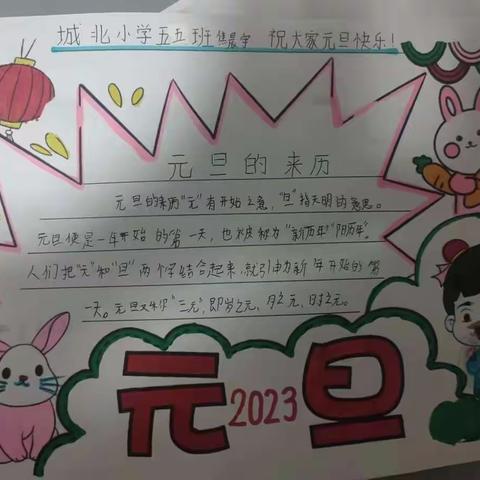 城北小学五五班焦晨宇 祝大家元旦快乐!
元旦的来历
元旦的来历"元"有开始之意,"旦"指天明的意思。
元旦便是一年开始的第一天,也被称为"新历年""阳历年"。
人们把"元"和"旦"两个字结合起来,就引申为新年开始的第
一天。元旦又叫"三元",即岁之元、月之元、时之元。
元旦
2023